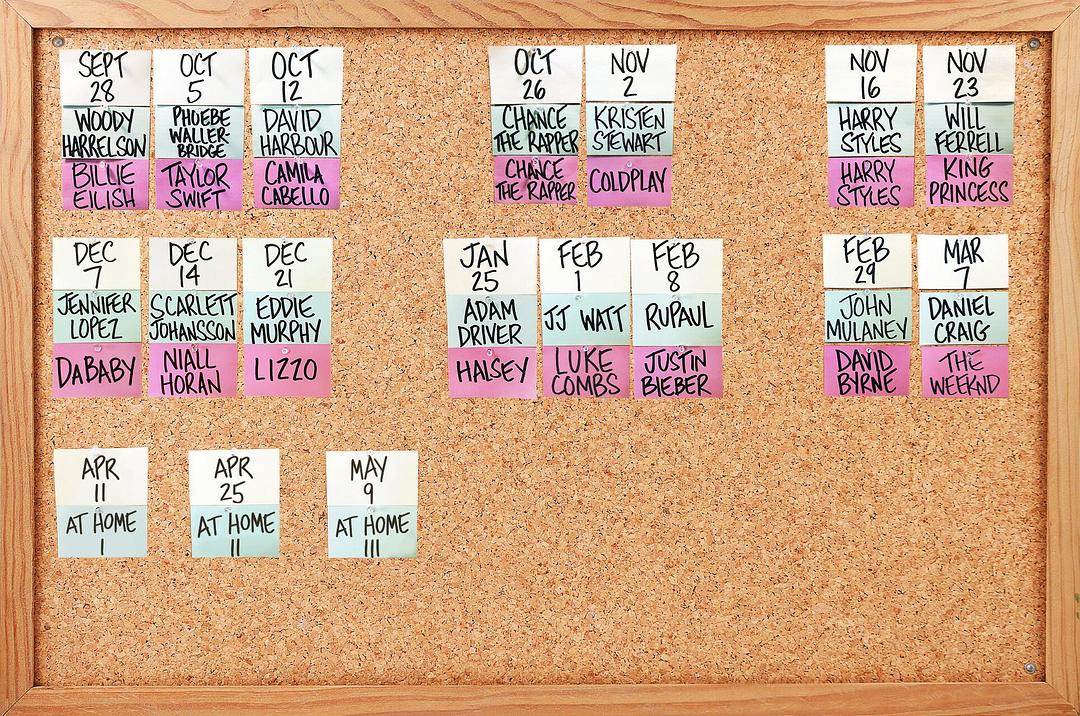 SEPT
28
WOODY
HARRELSON
BILLIE
EILISH
OCT
5
PHOEBE
WALLER-
BRIDGE
TAYLOR
SWIFT
OCT
12
DAVID
HARBOUR
CAMILA
CABELLO
OCT
26
CHANCE
THE RAPPER
CHANCE
THE RAPPER
NOV
2
KRISTEN
STEWART
COLDPLAY
NOV
16
HARRY
STYLES
HARRY
STYLES
NOV
23
WILL
FERRELL
KING
PRINCESS
DEC
7
JENNIFER
LOPEZ
DABABY
DEC
14
SCARLETT
JOHANSSON
NIALL
HORAN
DEC
21
EDDIE
MURPHY
LIZZO
JAN
25
ADAM
DRIVER
HALSEY
FEB
1
JJ WATT
LUKE
COMBS
FEB
8
RUPAUL
JUSTIN
BIEBER
FEB
29
JOHN
MULANEY
DAVID
BYRNE
MAR
7
DANIEL
CRAIG
THE
WEEKND
APR
11
AT HOME
I
APR
25
AT HOME
II
MAY
9
AT HOME
III